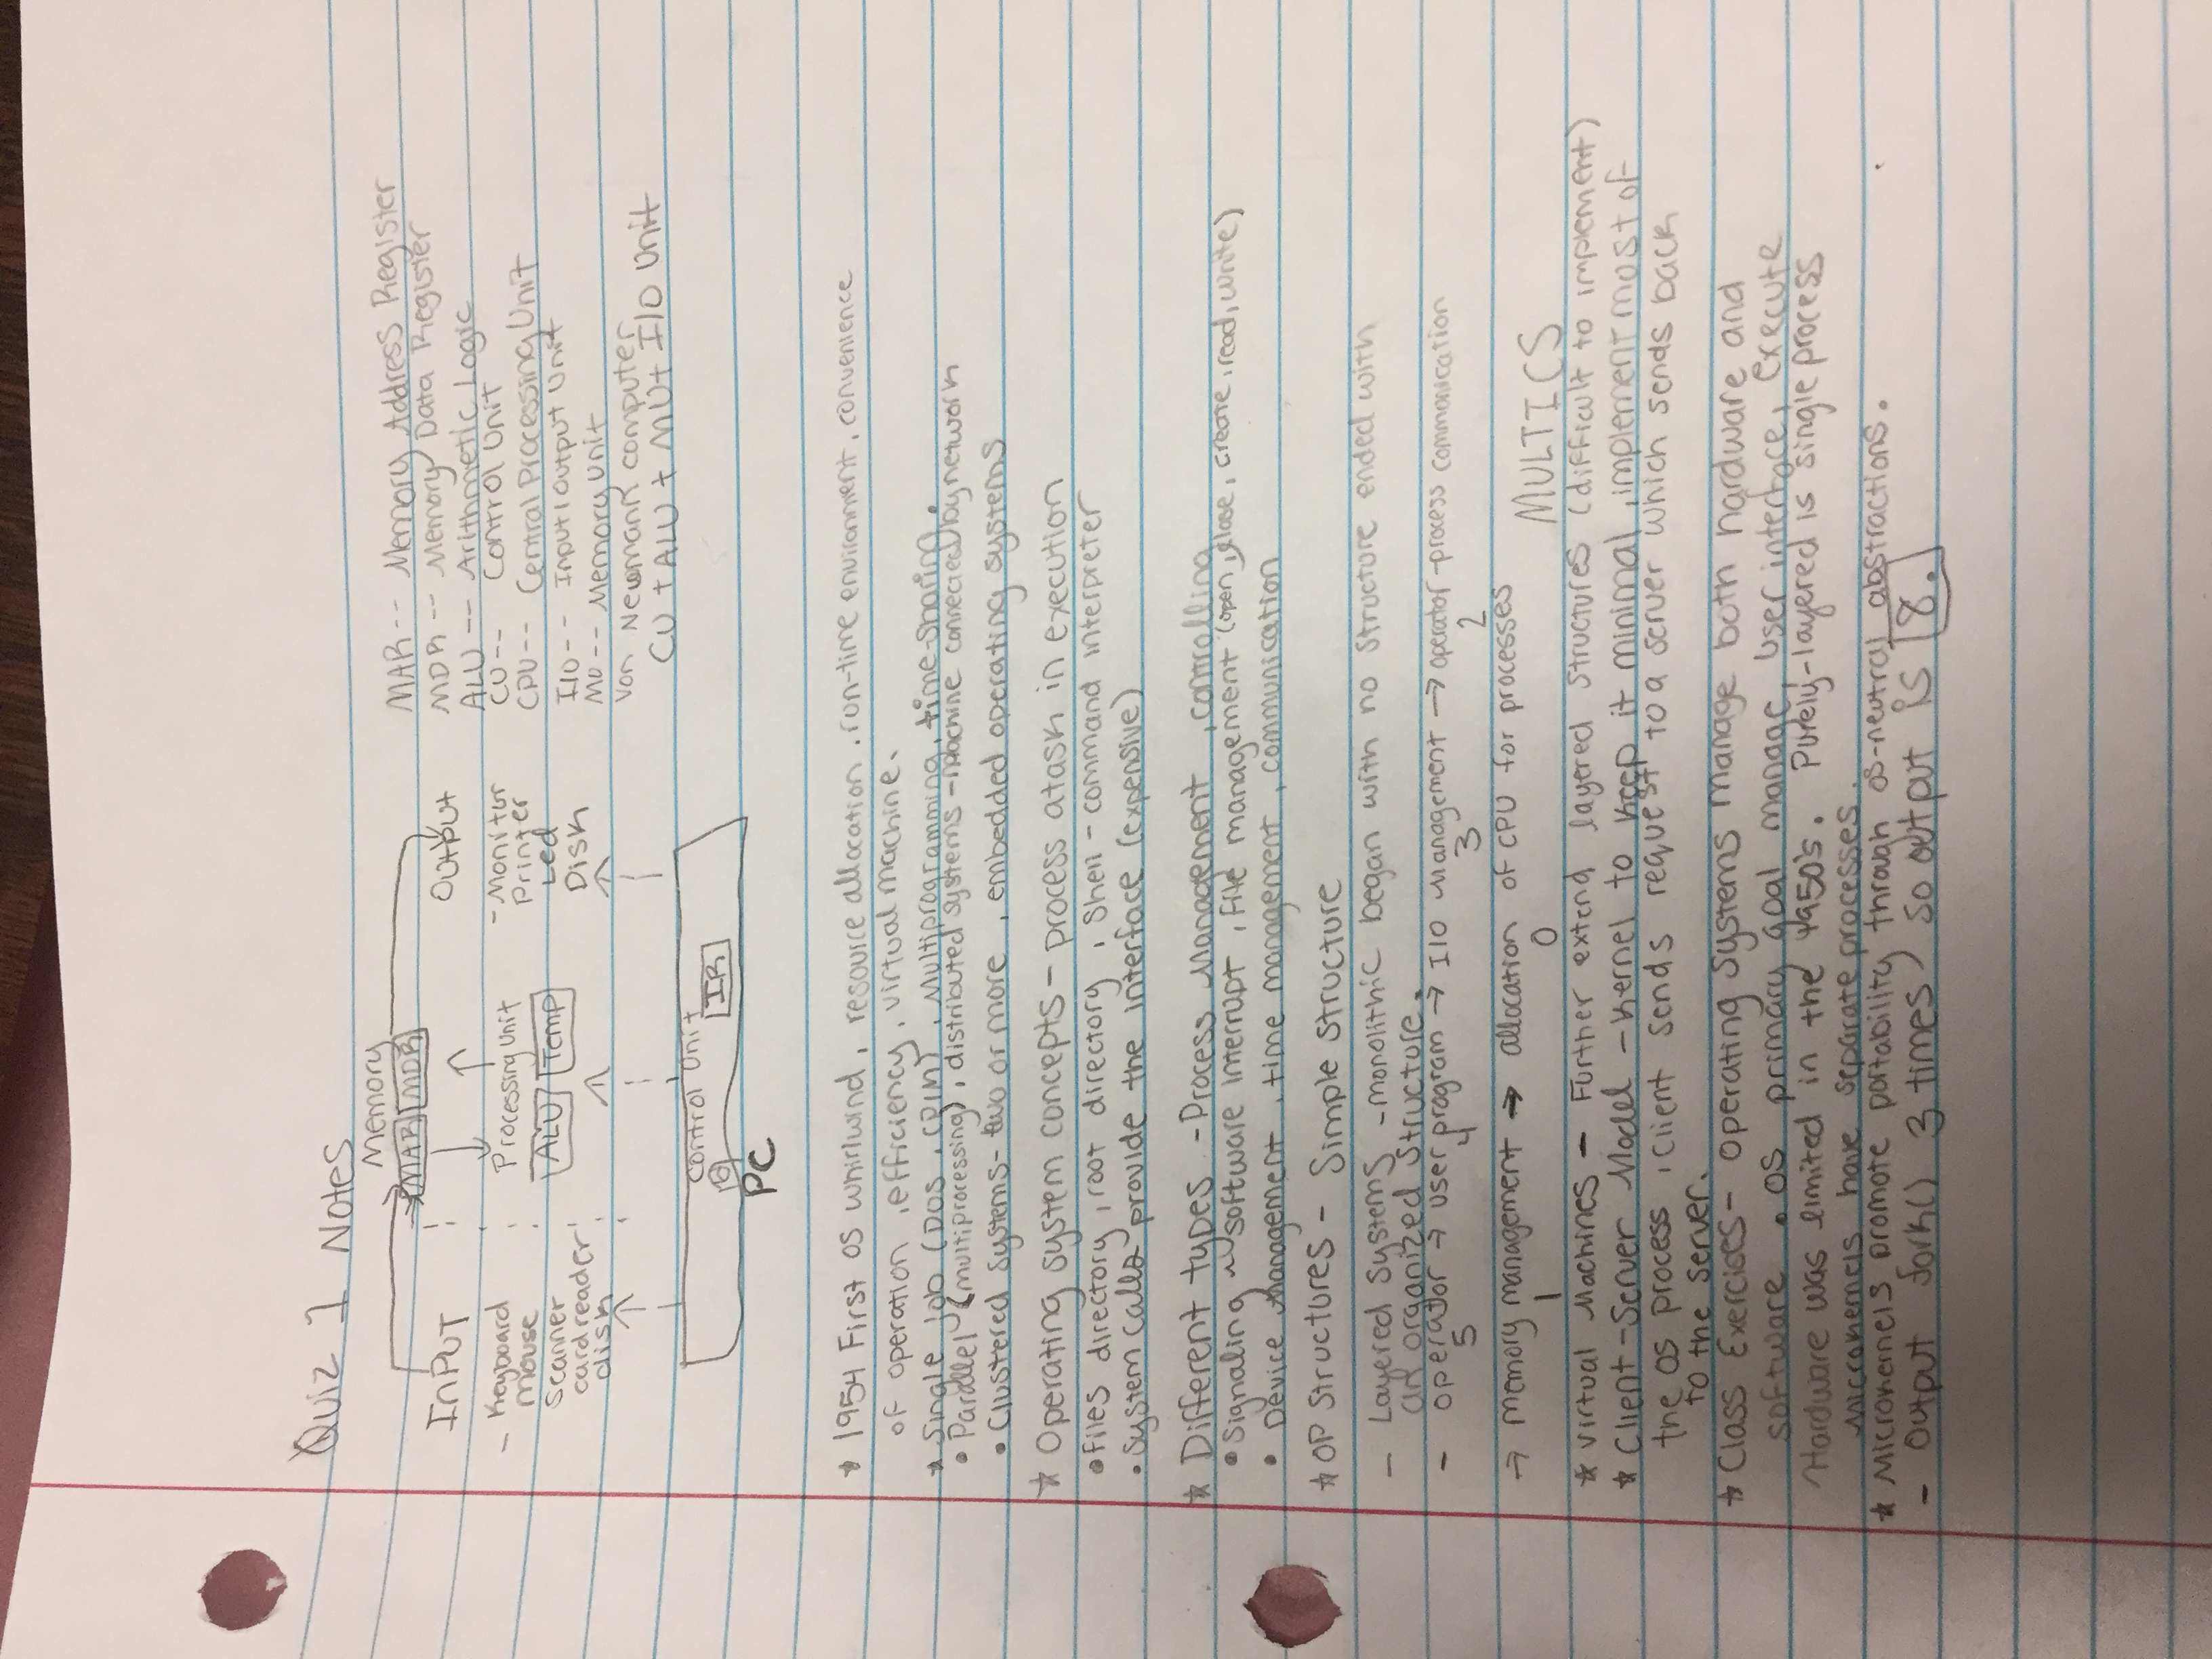 Quiz 1 Notes
Memory
MAR MDR
INPUT
OUTPUT
- Keyboard
mouse
scanner
card reader
disk
Processing Unit
ALU Temp
- Monitor
Printer
Led
Disk
Control Unit
IR
PC
MAR -- Memory Address Register
MDR -- Memory Data Register
ALU -- Arithmetic Logic
CU -- Control Unit
CPU -- Central Processing Unit
I/O -- Input/Output Unit
MU -- Memory Unit
Von Newmann computer
CU + ALU + MU + I/O Unit
* 1954 First OS whirlwind, resource allocation, run-time environment, convenience
of operation, efficiency, virtual machine.
* Single job (DOS, CP/M), Multiprogramming, time-sharing.
• Parallel (multiprocessing), distributed systems - machine connected by network
• Clustered systems - two or more, embedded operating systems
* Operating system concepts - process a task in execution
• files directory, root directory, Shell - command interpreter
• System calls provide the interface (expensive)
* Different types - Process Management, controlling
• Signaling ~ software interrupt, file management (open, close, create, read, write)
• Device management, time management, communication
* OP Structures - Simple structure
- Layered Systems - monolithic began with no structure ended with
an organized structure.
- operator → user program → I/O management → operator-process communication
5 4 3 2
→ memory management → allocation of CPU for processes
1 0
MULTICS
* Virtual Machines - Further extend layered structures (difficult to implement)
* Client-Server Model - Kernel to keep it minimal, implement most of
the OS process, client sends request to a server which sends back
to the server.
* Class Exercises - Operating Systems manage both hardware and
software. OS primary goal manage, user interface, execute
Hardware was limited in the 1950's. Purely-layered is single process
Microkernels have separate processes.
* Microkernels promote portability through os-neutral abstractions.
- Output fork() 3 times so output is 8.